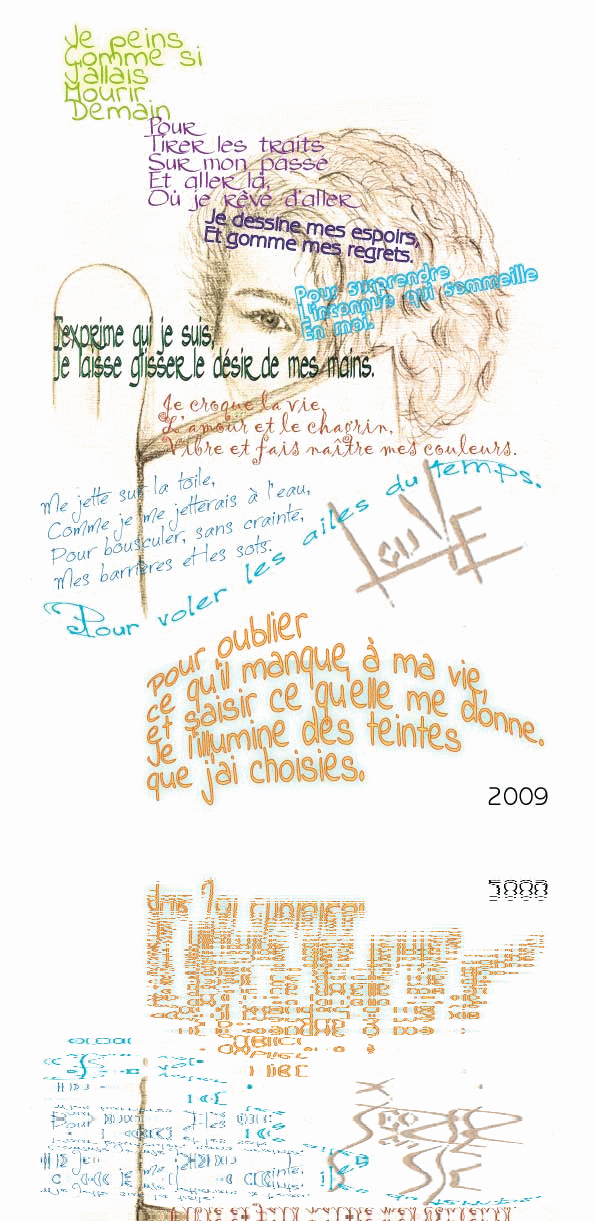 Je peins
Comme si
J'allais
Mourir
Demain
Pour
Tirer les traits
Sur mon passé
Et aller là,
Où je rêve d'aller
Je dessine mes espoirs,
Et gomme mes regrets.
Pour surprendre
L'inconnue qui sommeille
En moi.
J'exprime qui je suis,
Je laisse glisser le désir de mes mains.
Je croque la vie,
L'amour et le chagrin,
Vibre et fais naître mes couleurs.
Me jette sur la toile,
Comme je me jetterais à l'eau,
Pour bousculer, sans crainte,
Mes barrières et les sots.
Pour voler les ailes du temps.
LouVE
pour oublier
ce qu'il manque à ma vie,
et saisir ce quelle me donne.
Je l'illumine des teintes
que j'ai choisies.
2009